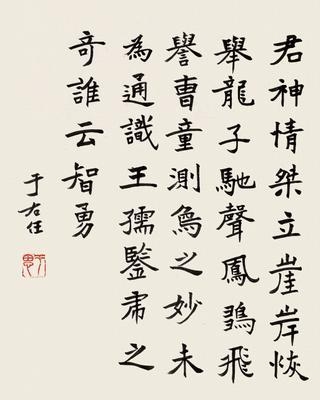 君神情桀立崖岸恢
舉龍子馳聲鳳鶵飛
譽曹童測鳥之妙未
為通識王孺鑒虎之
奇誰云智勇
于右任